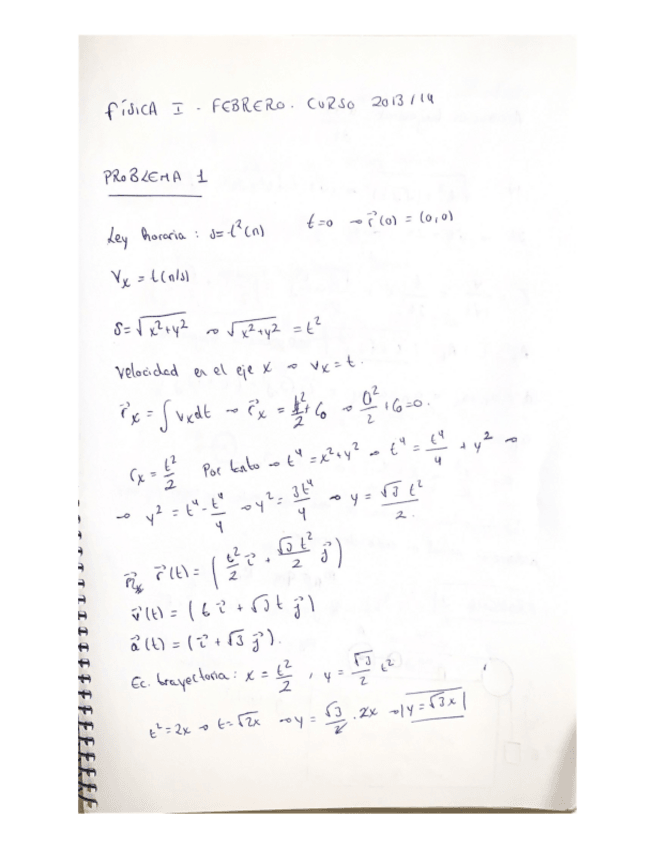 FÍSICA I - FEBRERO. CURSO 2013/14
PROBLEMA 1
Ley horaria : s=t²(m) t=0 → r⃗(0) = (0,0)
Vx = t(m/s)
S=√x²+y² → √x²+y² = t²
Velocidad en el eje x → vx=t.
r⃗x = ∫ vxdt → r⃗x = t²/2 + C₀ → 0²/2 + C₀=0.
rx = t²/2 Por tanto → t⁴ = x²+y² → t⁴ = t⁴/4 + y² →
→ y² = t⁴ - t⁴/4 → y² = 3t⁴/4 → y = √3 t²/2.
r⃗(t) = ( t²/2 i⃗ + √3 t²/2 j⃗ )
v⃗(t) = ( t i⃗ + √3 t j⃗ )
a⃗(t) = ( i⃗ + √3 j⃗ ).
Ec. trayectoria : x = t²/2 , y = √3/2 t²
t² = 2x → t = √2x → y = √3/2 . 2x → |y = √3x|